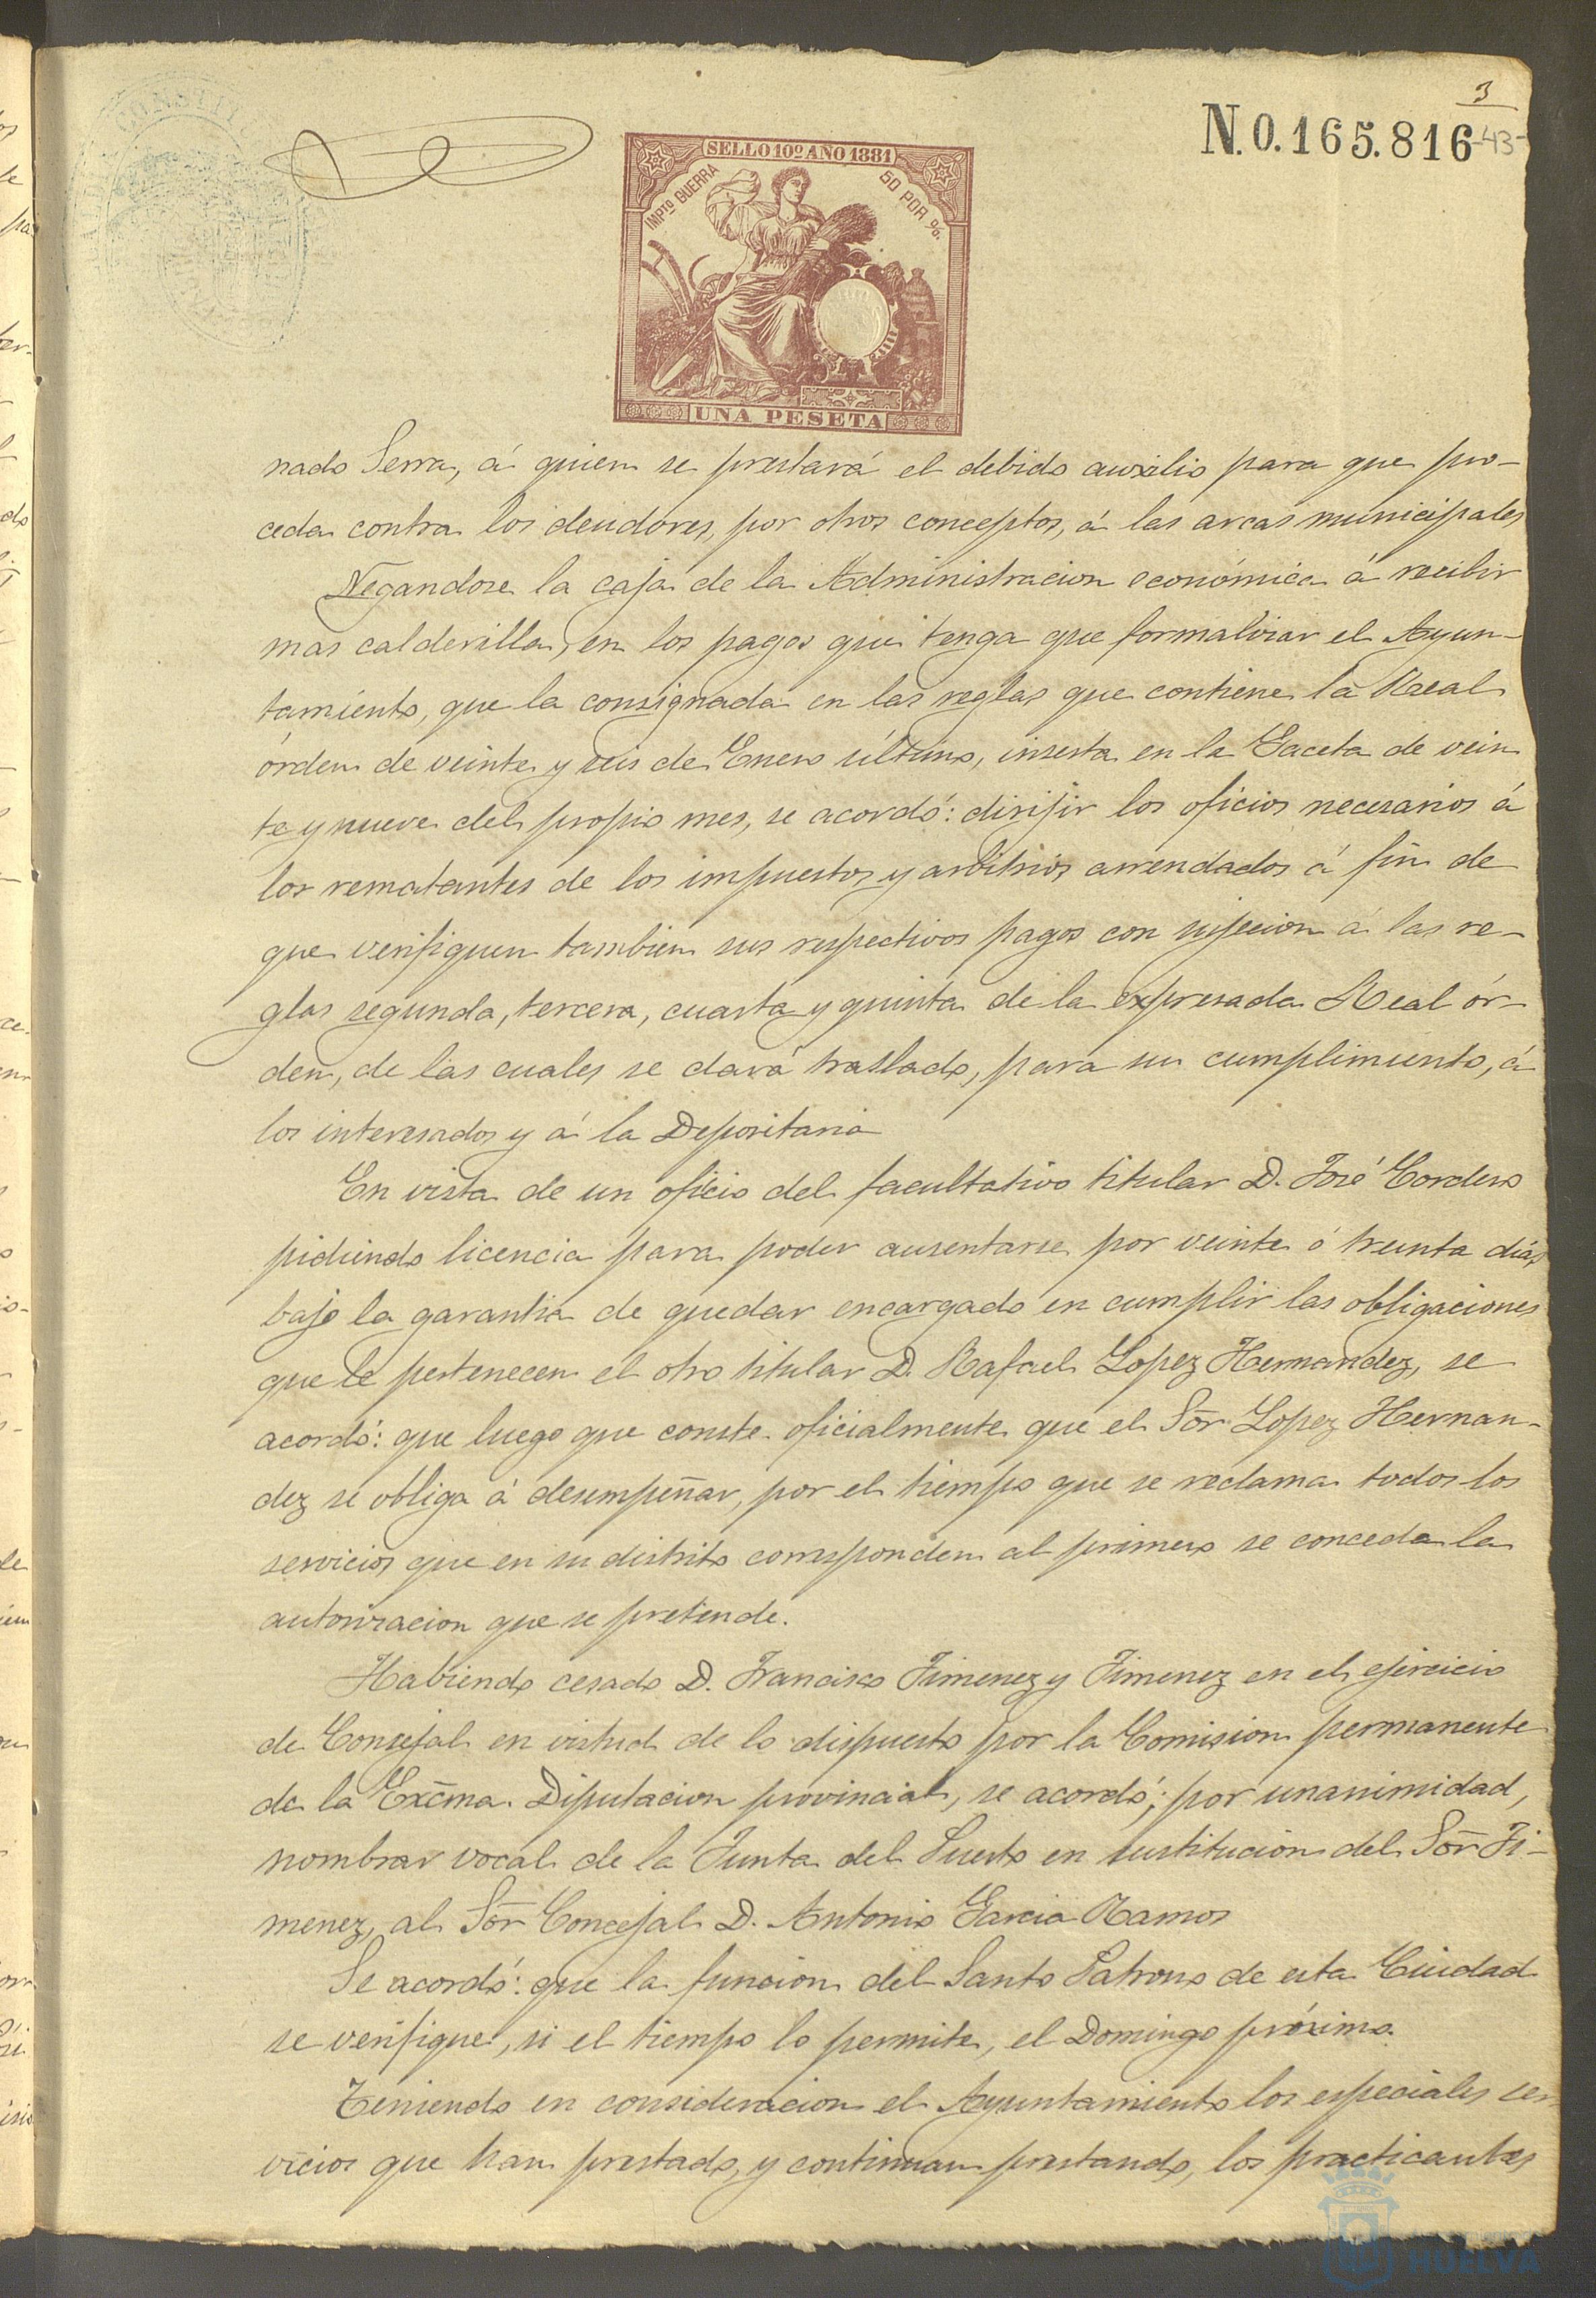 3
N.0.165.816
-43-
CONSTITU
SELLO 10º AÑO 1881
IMPTO GUERRA
50 POR %.
UNA PESETA
nado Serra, á quien se prestará el debido auxilio para que pro-
ceda contra los deudores, por otros conceptos, á las arcas municipales
Negandose la caja de la Administracion económica á recibir
mas calderilla, en los pagos que tenga que formalizar el Ayun-
tamiento, que la consignada en las reglas que contiene la Real
órden de veinte y seis de Enero último, inserta en la Gaceta de vein
te y nueve del propio mes, se acordó: dirijir los oficios necesarios á
los rematantes de los impuestos y arbitrios arrendados á fin de
que verifiquen tambien sus respectivos pagos con sujecion á las re-
glas segunda, tercera, cuarta y quinta de la expresada Real ór-
den, de las cuales se dará traslado, para su cumplimiento, á
los interesados y á la Depositaria
En vista de un oficio del facultativo titular D. José Cordero
pidiendo licencia para poder ausentarse por veinte ó treinta dias
bajo la garantia de quedar encargado en cumplir las obligaciones
que le pertenecen el otro titular D. Rafael Lopez Hernandez, se
acordó: que luego que conste oficialmente que el Sõr Lopez Hernan-
dez se obliga á desempeñar, por el tiempo que se reclama todos los
servicios que en su distrito corresponden al primero se conceda la
autorizacion que se pretende.
Habiendo cesado D. Francisco Jimenez y Jimenez en el ejercicio
de Consejal en virtud de lo dispuesto por la Comision permanente
de la Excma. Diputacion provincial, se acordó; por unanimidad,
nombrar vocal de la Junta del Puerto en sustitucion del Sõr Ji-
menez, al Sõr Concejal D. Antonio Garcia Ramos
Se acordó: que la funcion del Santo Patrono de esta Ciudad
se verifique, si el tiempo lo permite, el Domingo próximo.
Teniendo en consideracion el Ayuntamiento los especiales ser
vicios que han prestado, y continuan prestando, los practicantes
HUELVA